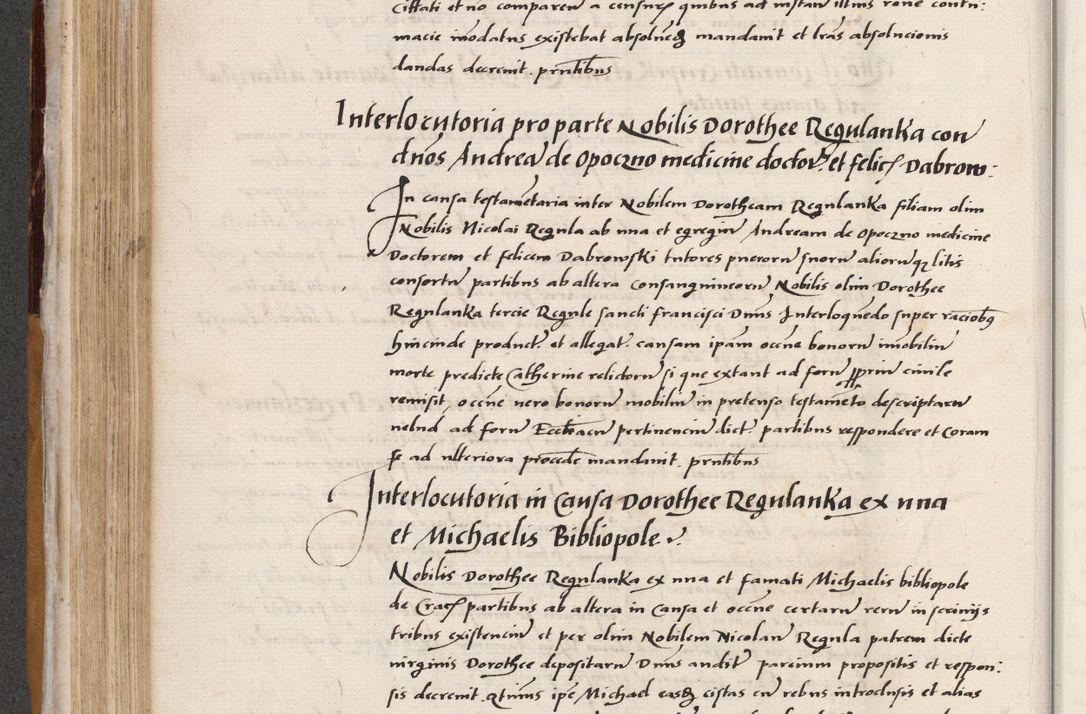 cittati et no comparen a censuris quibus ad instan illius rone contu:
macie inodatus existebat absolueq mandauit et lras absolucionis
dandas decreuit. prntibus
Interlocutoria pro parte Nobilis Dorothee Regulanka con
dnos Andrea de Opoczno medicine doctor et felic Dabrow:
In causa testametaria inter Nobilem Dorotheam Regulanka filiam olim
Nobilis Nicolai Regula ab una et egregiu Andream de Opoczno medicine
Doctorem et felicem Dabrowski tutores pueroru suoru alioruq litis
consortu partibus ab altera consanguineoru Nobilis olim Dorothee
Regulanka tercie Regule sancti francisci Dnus Interloquedo super raciobq
hincinde product. et allegat. causam ipam occne bonoru imobiliu
morte predicte Catherine relictoru si que extant ad foru ppriu ciuile
remisit, occne uero bonoru mobiliu in pretenso testameto descriptaru
uelud ad foru Eccleacu pertinenciu dict. partibus respondere et coram
se ad ulteriora procede mandauit. prntibus
Interlocutoria in causa Dorothee Regulanka ex una
et Michaelis Bibliopole
Nobilis Dorothee Regulanka ex una et famati Michaelis bibliopole
de Crac partibus ab altera in causa et occne certaru reru in scrinijs
tribus existenciu et per olim Nobilem Nicolau Regula patrem dicte
uirginis Dorothee depositaru Dnus audit parcium propositis et respon:
sis decreuit qtinus ipe Michael easq cistas cu rebus introclusis et alias